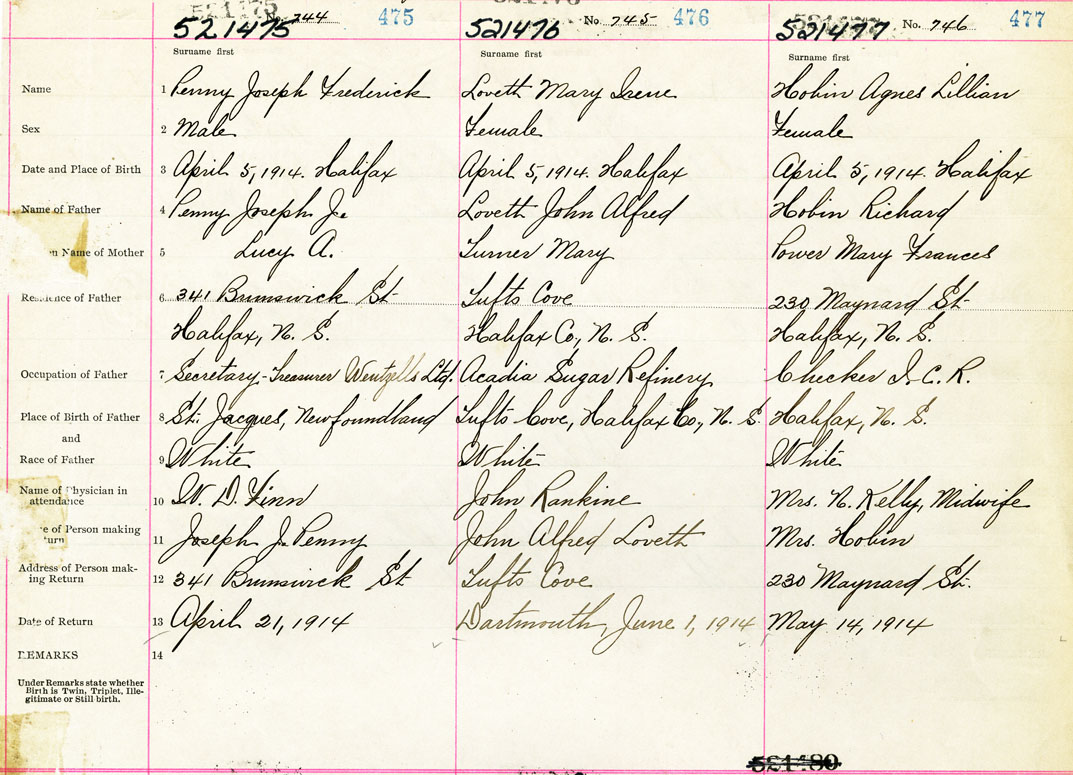 521475 No. 744 475
521476 No. 745 476
521477 No. 746 477
Surname first Surname first Surname first
Name 1 Penny Joseph Frederick Loveth Mary Irene Hobin Agnes Lillian
Sex 2 Male Female Female
Date and Place of Birth 3 April 5, 1914. Halifax April 5, 1914. Halifax April 5, 1914. Halifax
Name of Father 4 Penny Joseph J. Loveth John Alfred Hobin Richard
Name of Mother 5 Lucy A. Turner Mary Power Mary Frances
Residence of Father 6 341 Brunswick St Tufts Cove 230 Maynard St.
Halifax, N. S. Halifax Co., N. S. Halifax, N. S.
Occupation of Father 7 Secretary-Treasurer Wentzells Ltd. Acadia Sugar Refinery Checker I. C. R.
Place of Birth of Father 8 St. Jacques, Newfoundland Tufts Cove, Halifax Co., N. S. Halifax, N. S.
and
Race of Father 9 White White White
Name of Physician in
attendance 10 W. D. Finn John Rankine Mrs. N. Kelly, Midwife
of Person making
11 Joseph J. Penny John Alfred Loveth Mrs. Hobin
Address of Person mak-
ing Return 12 341 Brunswick St Tufts Cove 230 Maynard St.
Date of Return 13 April 21, 1914 Dartmouth, June 1, 1914 May 14, 1914
REMARKS 14
Under Remarks state whether
Birth is Twin, Triplet, Ille-
gitimate or Still birth.
521480